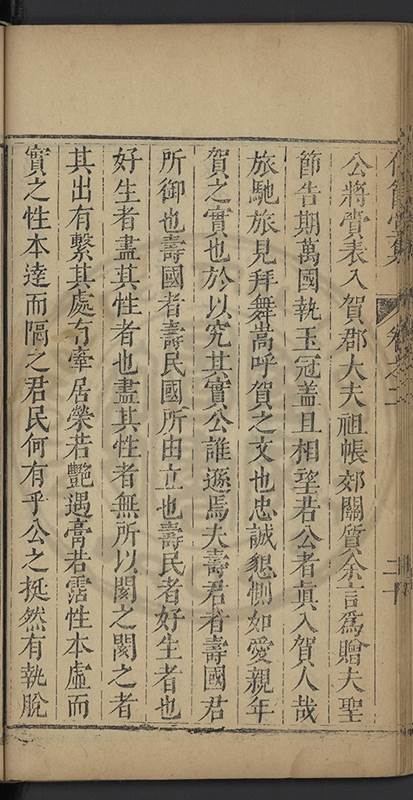 公將賫表入賀郡大夫祖帳郊關質余言爲贈夫聖
節告期萬國執玉冠蓋且相望若公者眞入賀人哉
旅馳旅見拜舞嵩呼賀之文也忠誠懇惻如愛親年
賀之實也於以究其實公誰遜焉夫壽君者壽國君
所御也壽國者壽民國所由立也壽民者好生者也
好生者盡其性者也盡其性者無所以閡之閡之者
其出有繫其處有牽居榮若艷遇膏若霑性本虛而
實之性本達而隔之君民何有乎公之挺然有執脫